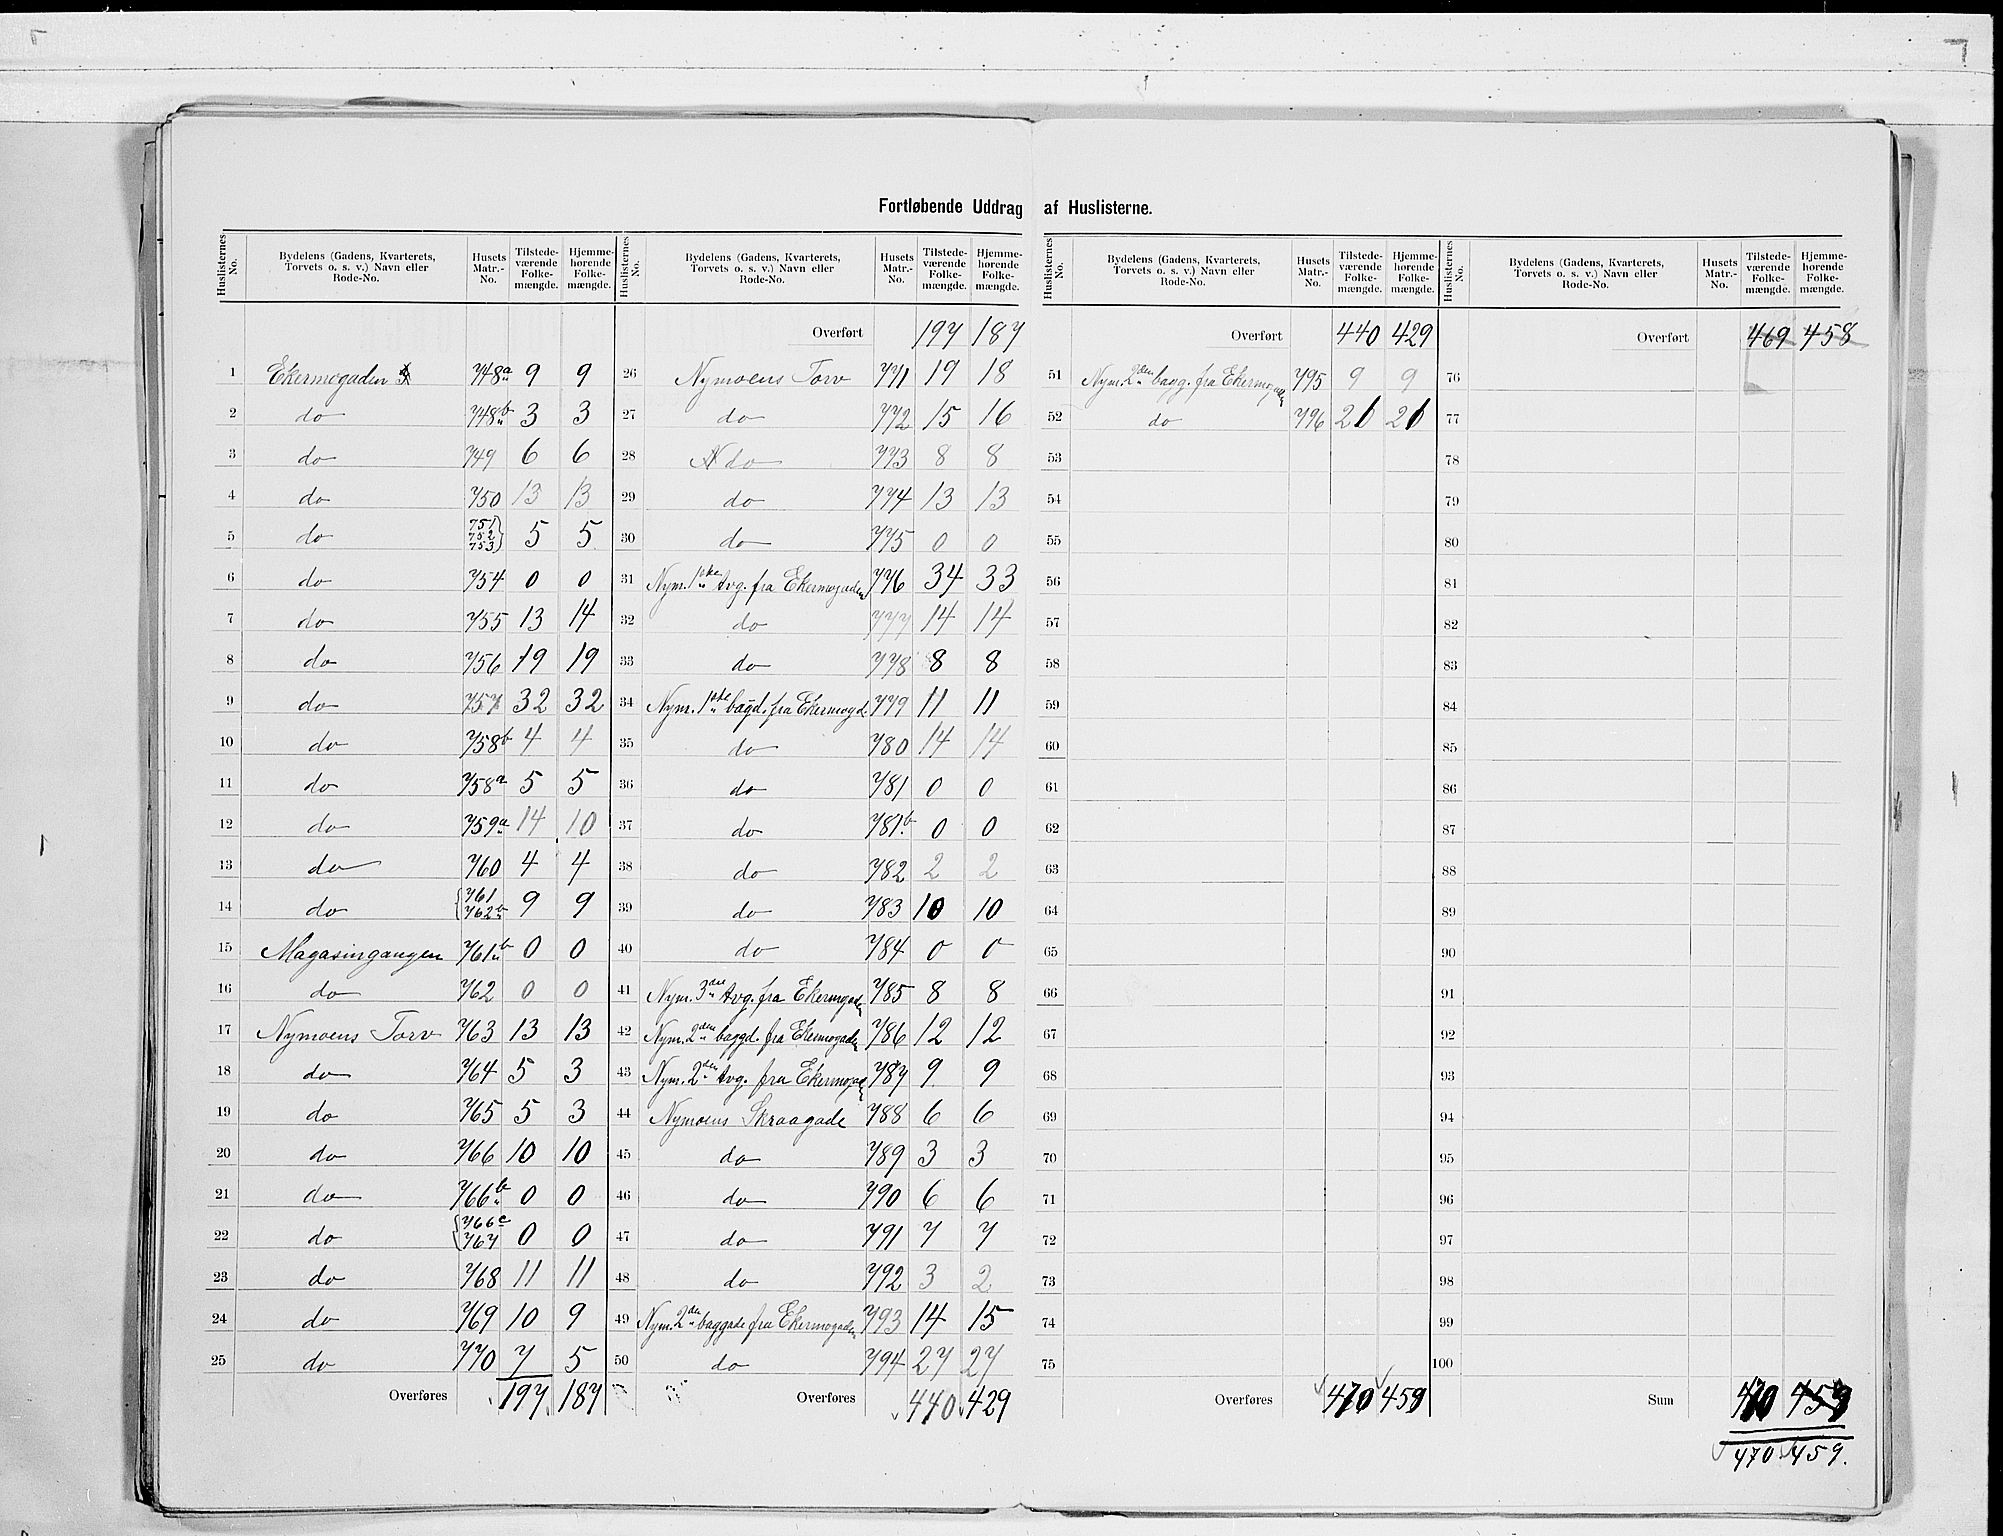 Fortløbende Uddrag af Huslisterne.
Huslisternes No. | Bydelens (Gadens, Kvarterets, Torvets o. s. v.) Navn eller Rode-No. | Husets Matr.-No. | Tilstedeværende Folkemængde. | Hjemmehørende Folkemængde.
1 Ekermogaden 748a 9 9
2 do 748b 3 3
3 do 749 6 6
4 do 750 13 13
5 do 751 752 753 5 5
6 do 754 0 0
7 do 755 13 14
8 do 756 19 19
9 do 757 32 32
10 do 758b 4 4
11 do 758a 5 5
12 do 759a 14 10
13 do 760 4 4
14 do 761 762b 9 9
15 Magasingangen 761b 0 0
16 do 762 0 0
17 Nymoens Torv 763 13 13
18 do 764 5 3
19 do 765 5 3
20 do 766 10 10
21 do 766b 0 0
22 do 766c 767 0 0
23 do 768 11 11
24 do 769 10 9
25 do 770 7 5
Overføres 197 187
Huslisternes No. | Bydelens (Gadens, Kvarterets, Torvets o. s. v.) Navn eller Rode-No. | Husets Matr.-No. | Tilstedeværende Folkemængde. | Hjemmehørende Folkemængde.
Overført 197 187
26 Nymoens Torv 771 19 18
27 do 772 15 16
28 do 773 8 8
29 do 774 13 13
30 do 775 0 0
31 Nym. 1ste tvg. fra Ekermogaden 776 34 33
32 do 777 14 14
33 do 778 8 8
34 Nym. 1ste bagd. fra Ekermogd 779 11 11
35 do 780 14 14
36 do 781 0 0
37 do 781b 0 0
38 do 782 2 2
39 do 783 10 10
40 do 784 0 0
41 Nym. 3die tvg. fra Ekermogaden 785 8 8
42 Nym. 2den baggd. fra Ekermogaden 786 12 12
43 Nym. 2den tvg. fra Ekermogaden 787 9 9
44 Nymoens Skraagade 788 6 6
45 do 789 3 3
46 do 790 6 6
47 do 791 7 7
48 do 792 3 2
49 Nym. 2den baggade fra Ekermogaden 793 14 15
50 do 794 27 27
Overføres 440 429
Huslisternes No. | Bydelens (Gadens, Kvarterets, Torvets o. s. v.) Navn eller Rode-No. | Husets Matr.-No. | Tilstedeværende Folkemængde. | Hjemmehørende Folkemængde.
Overført 440 429
51 Nym. 2den bagg. fra Ekermogaden 795 9 9
52 do 796 21 21
53
54
55
56
57
58
59
60
61
62
63
64
65
66
67
68
69
70
71
72
73
74
75
Overføres 470 459
Huslisternes No. | Bydelens (Gadens, Kvarterets, Torvets o. s. v.) Navn eller Rode-No. | Husets Matr.-No. | Tilstedeværende Folkemængde. | Hjemmehørende Folkemængde.
Overført 469 458
76
77
78
79
80
81
82
83
84
85
86
87
88
89
90
91
92
93
94
95
96
97
98
99
100
Sum 470 459
470 459.